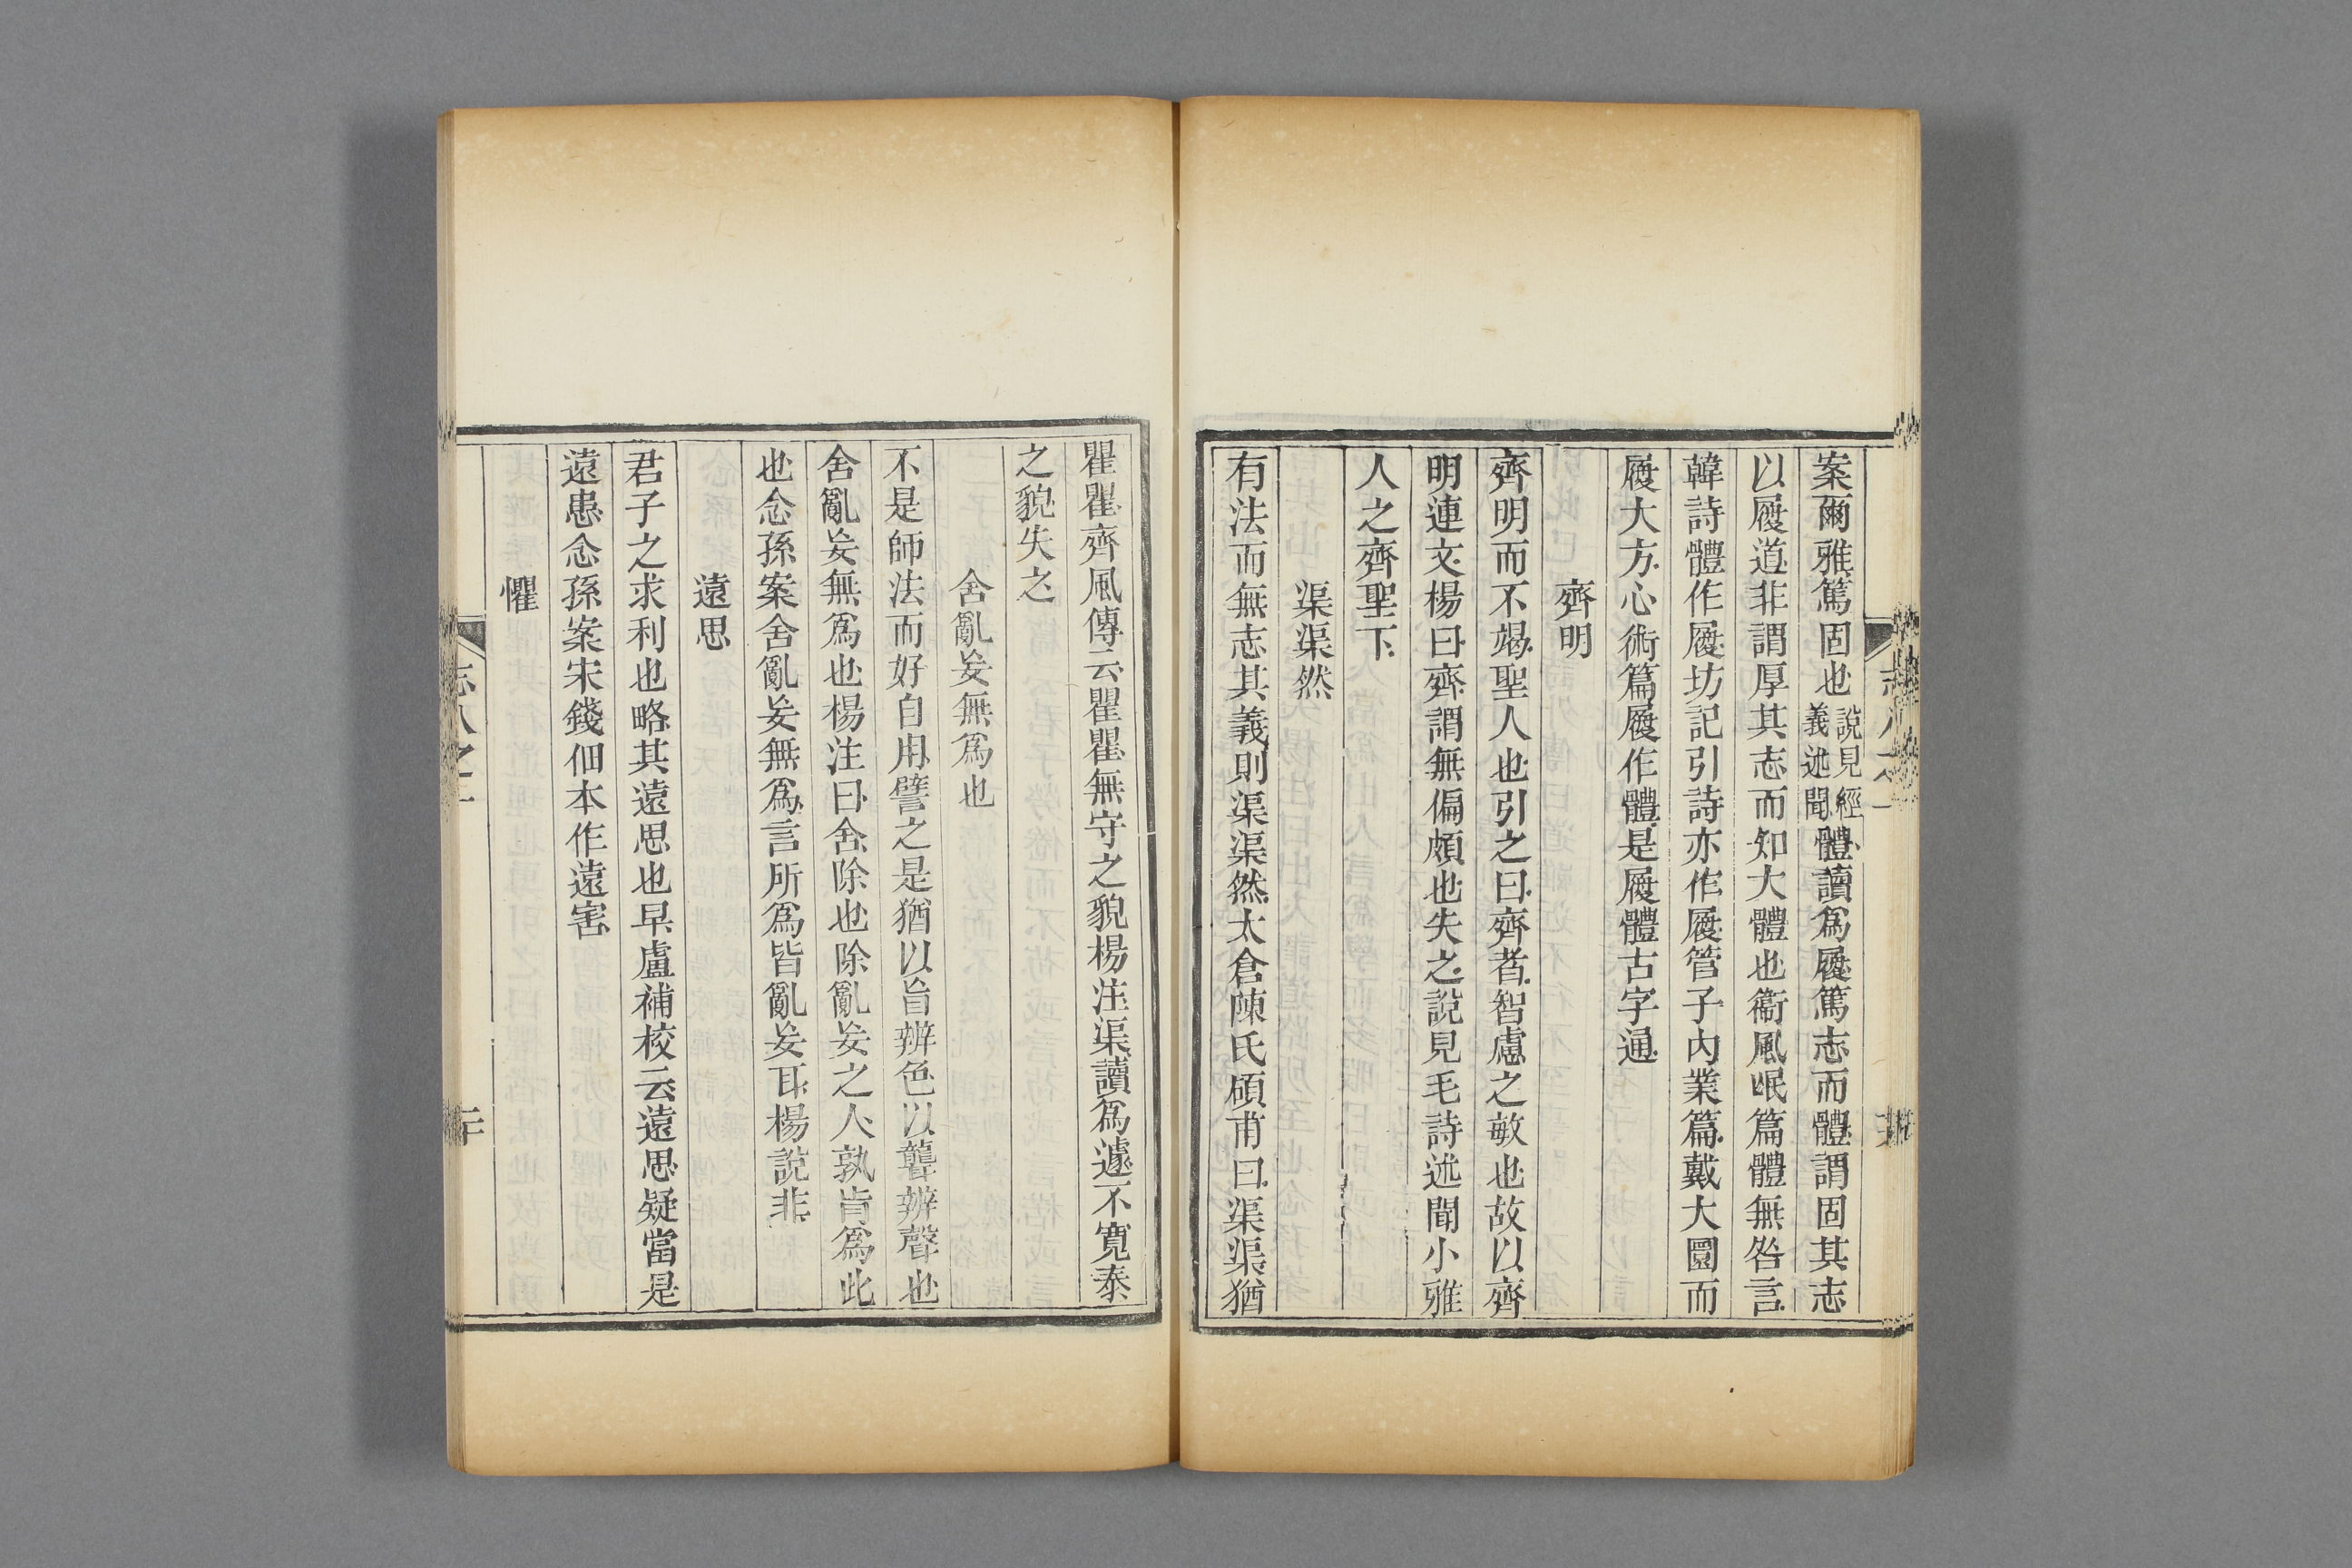 案爾雅篤固也說見經義述聞體讀爲履篤志而體謂固其志
以履道非謂厚其志而知大體也衞風氓篇體無咎言
韓詩體作履坊記引詩亦作履管子內業篇戴大圜而
履大方心術篇履作體是履體古字通
齊明
齊明而不竭聖人也引之曰齊者智慮之敏也故以齊
明連文楊曰齊謂無偏頗也失之說見毛詩述聞小雅
人之齊聖下
渠渠然
有法而無志其義則渠渠然太倉陳氏碩甫曰渠渠猶
瞿瞿齊風傳云瞿瞿無守之貌楊注渠讀爲遽不寬泰
之貌失之
舍亂妄無爲也
不是師法而好自用譬之是猶以盲辨色以聾辨聲也
舍亂妄無爲也楊注曰舍除也除亂妄之人孰肯爲此
也念孫案舍亂妄無爲言所爲皆亂妄耳楊說非
遠思
君子之求利也略其遠思也早盧補校云遠思疑當是
遠患念孫案宋錢佃本作遠害
懼
志八之一